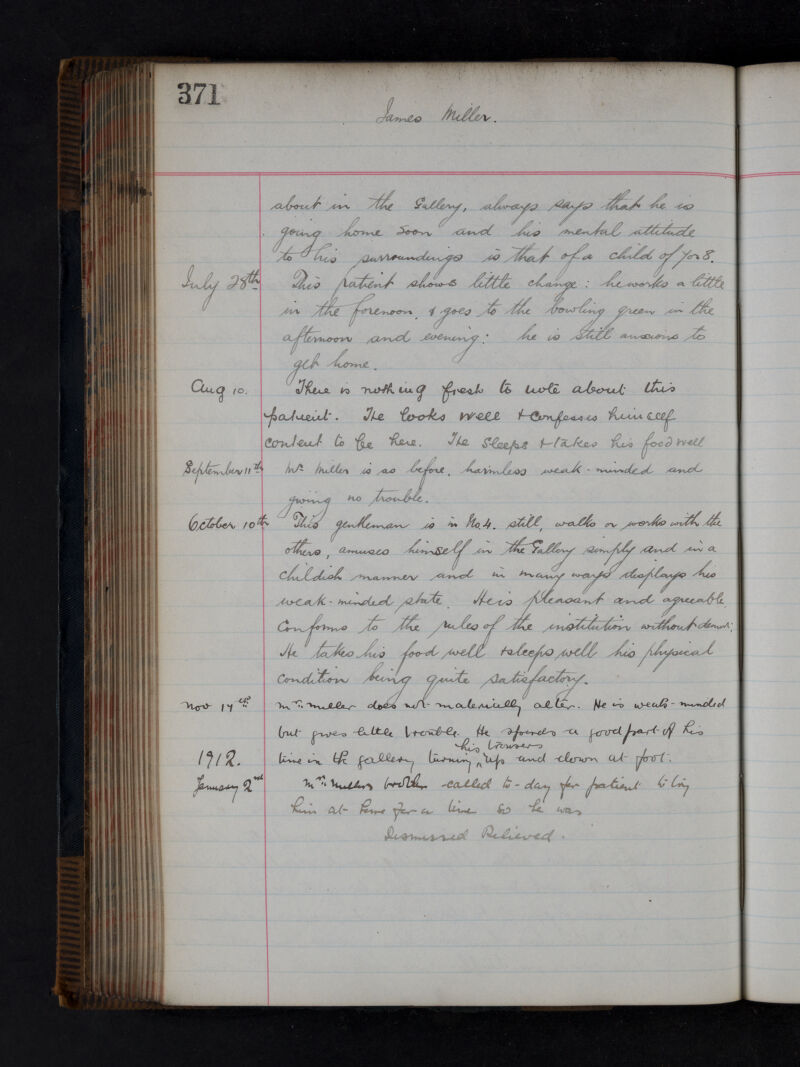 371
James Miller.
about in the Gallery, always says that he is
going home soon and his mental attitude
to his surroundings is that of a child of 7 or 8.
July 28th This patient shows little change: he works a little
in the forenoon, & goes to the bowling green in the
afternoon and evening: he is still anxious to
get home.
Aug 10. There is nothing fresh to note about this
patient. He looks well & confesses himself
content to be here. He sleeps & takes his food well
September 11th Mr Miller is as before, harmless weak-minded and
giving no trouble.
October 10th This gentleman is in No 4. still, walks or works with the
others, amuses himself in the Gallery simply and in a
childish manner and in many ways displays his
weak-minded state. He is pleasant and agreeable
Conforms to the rules of the institution without
He takes his food well & sleeps well his physical
condition being quite satisfactory.
Nov 14th Mr Miller does not materially alter. He is weak-minded
but gives little trouble. He spends a good part of his
time in the gallery turning his trousers up and down at foot.
1912.
January 2nd Mr Millers brother called to-day for patient to
him at home for a time so he was
Dismissed Relieved.